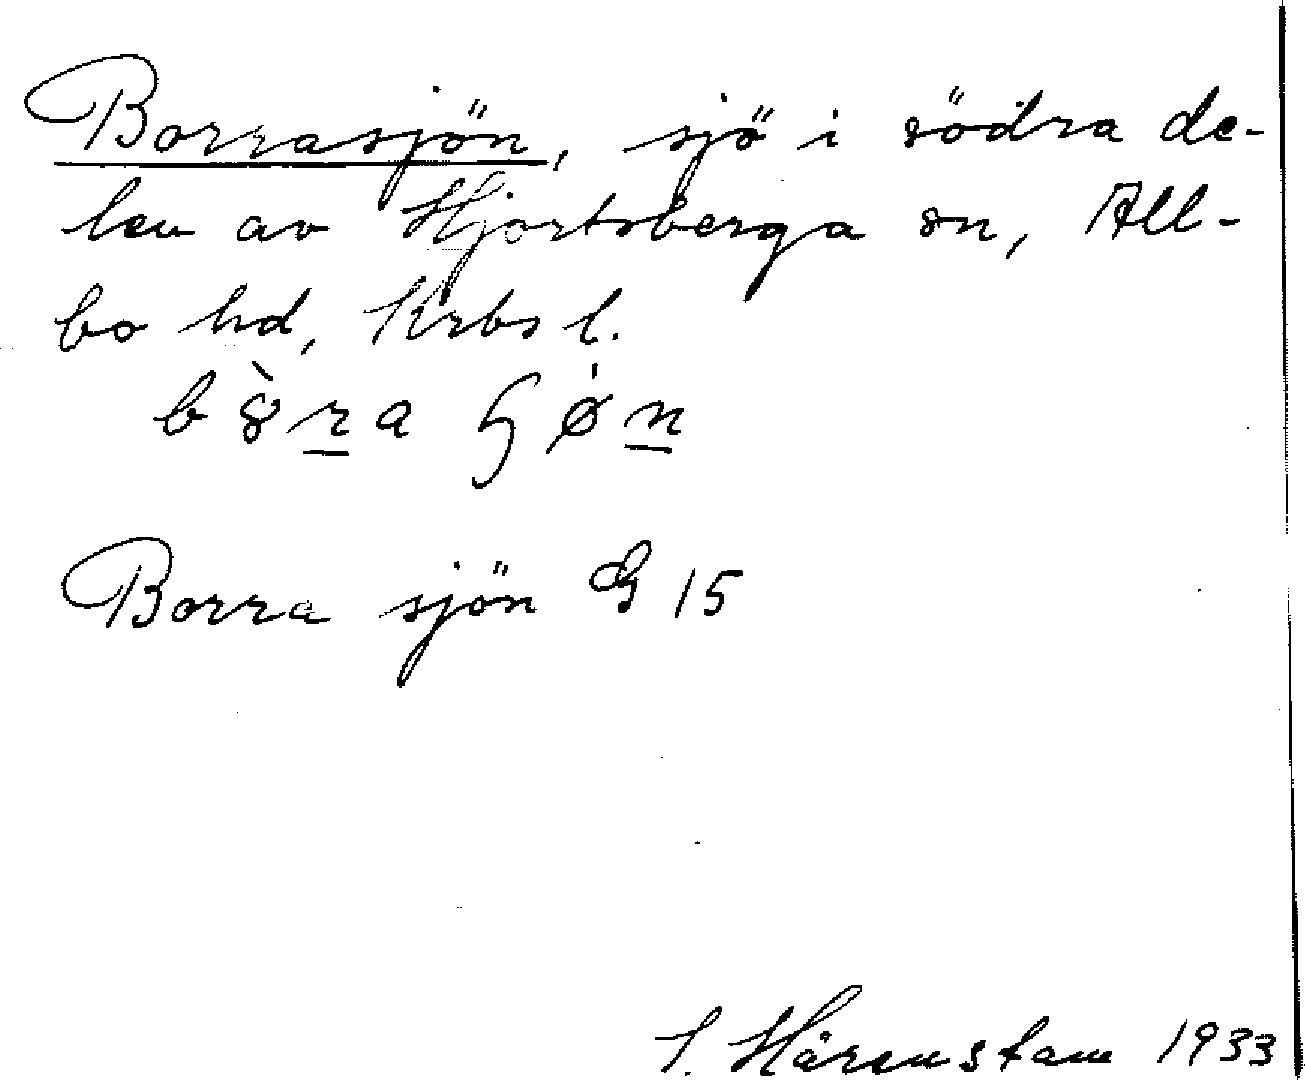 Borrasjön, sjö i södra de-
len av Hjortsberga sn, All-
bo hd, Krbs l.
Borra sjön G 15
Hårenstam 1933